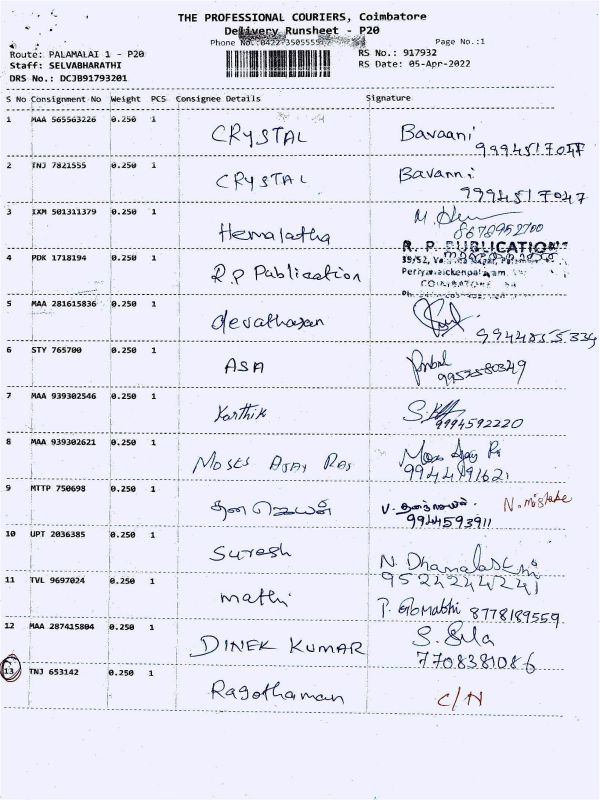 THE PROFESSIONAL COURIERS, Coimbatore
Delivery Runsheet - P20
Phone No.:0422-3505555 Page No.:1
Route: PALAMALAI 1 - P20 RS No.: 917932
Staff: SELVABHARATHI RS Date: 05-Apr-2022
DRS No.: DCJB91793201
S No Consignment No Weight PCS Consignee Details Signature
1 MAA 565563226 0.250 1 CRYSTAL Bavaani
9994517047
2 TNJ 7821555 0.250 1 CRYSTAL Bavanni
9994517047
3 IXM 501311379 0.250 1 Hemalatha
8678952700
4 PDK 1718194 0.250 1 R.P Publication R. P. PUBLICATIONS
39/52,
COIMBATORE
5 MAA 281615836 0.250 1 devathasan
6 STY 765700 0.250 1 ASA
7 MAA 939302546 0.250 1 Karthik
9994592220
8 MAA 939302621 0.250 1 MOSES AJAY RAJ
9 MTTP 750698 0.250 1 தன ஜெயன் N. mistake
9944593911
10 UPT 2036385 0.250 1 Suresh N. Dhanalakshmi
9524224241
11 TVL 9697024 0.250 1 mathi P. Gomathi 8778189559
12 MAA 287415804 0.250 1 DINEK KUMAR S. Sila
7708381086
13 TNJ 653142 0.250 1 Ragothaman C/N